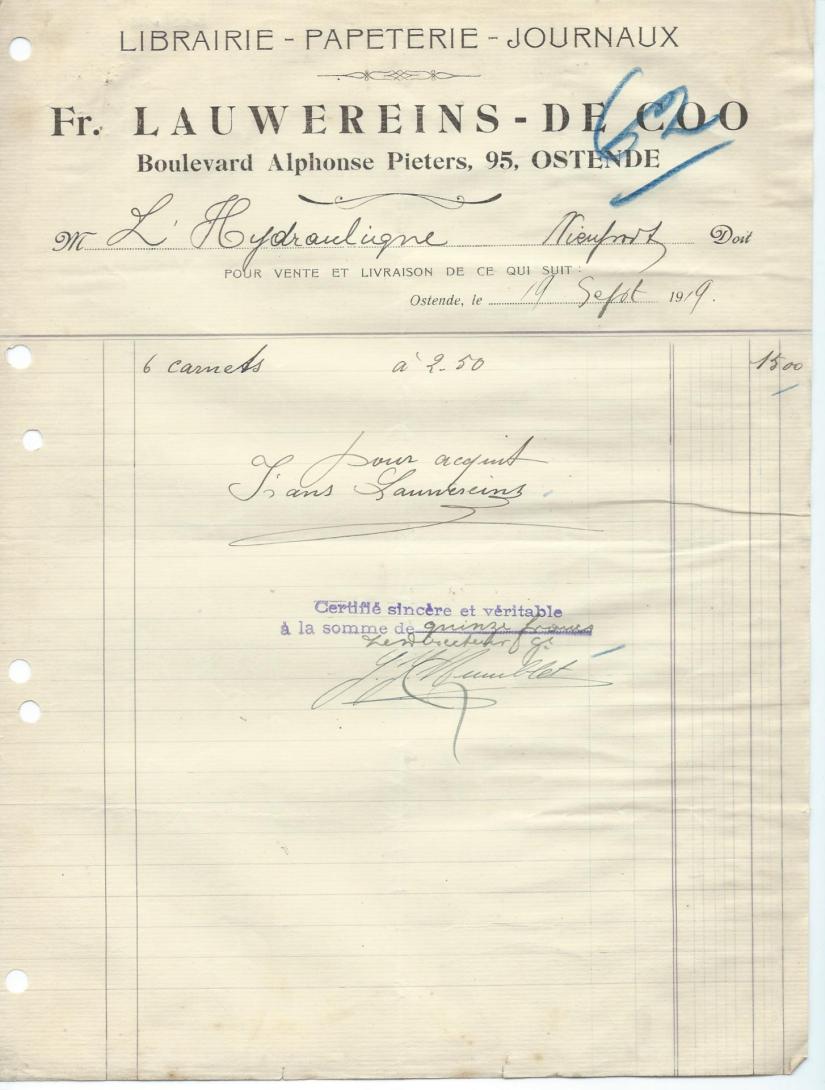 LIBRAIRIE - PAPETERIE - JOURNAUX
Fr. LAUWEREINS - DE COO
62
Boulevard Alphonse Pieters, 95, OSTENDE
M L'Hydraulique Nieuport Doit
POUR VENTE ET LIVRAISON DE CE QUI SUIT :
Ostende, le 19 Sept 1919.
6 carnets à 2.50 15 00
pour acquit
Frans Lauwereins
Certifié sincère et véritable
à la somme de quinze francs